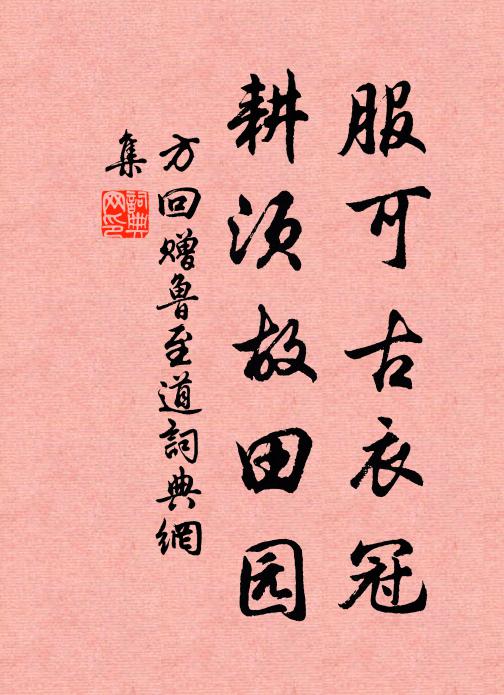 服可古衣冠
耕须故田园
方回赠鲁至道詞典網
集
詞典网印